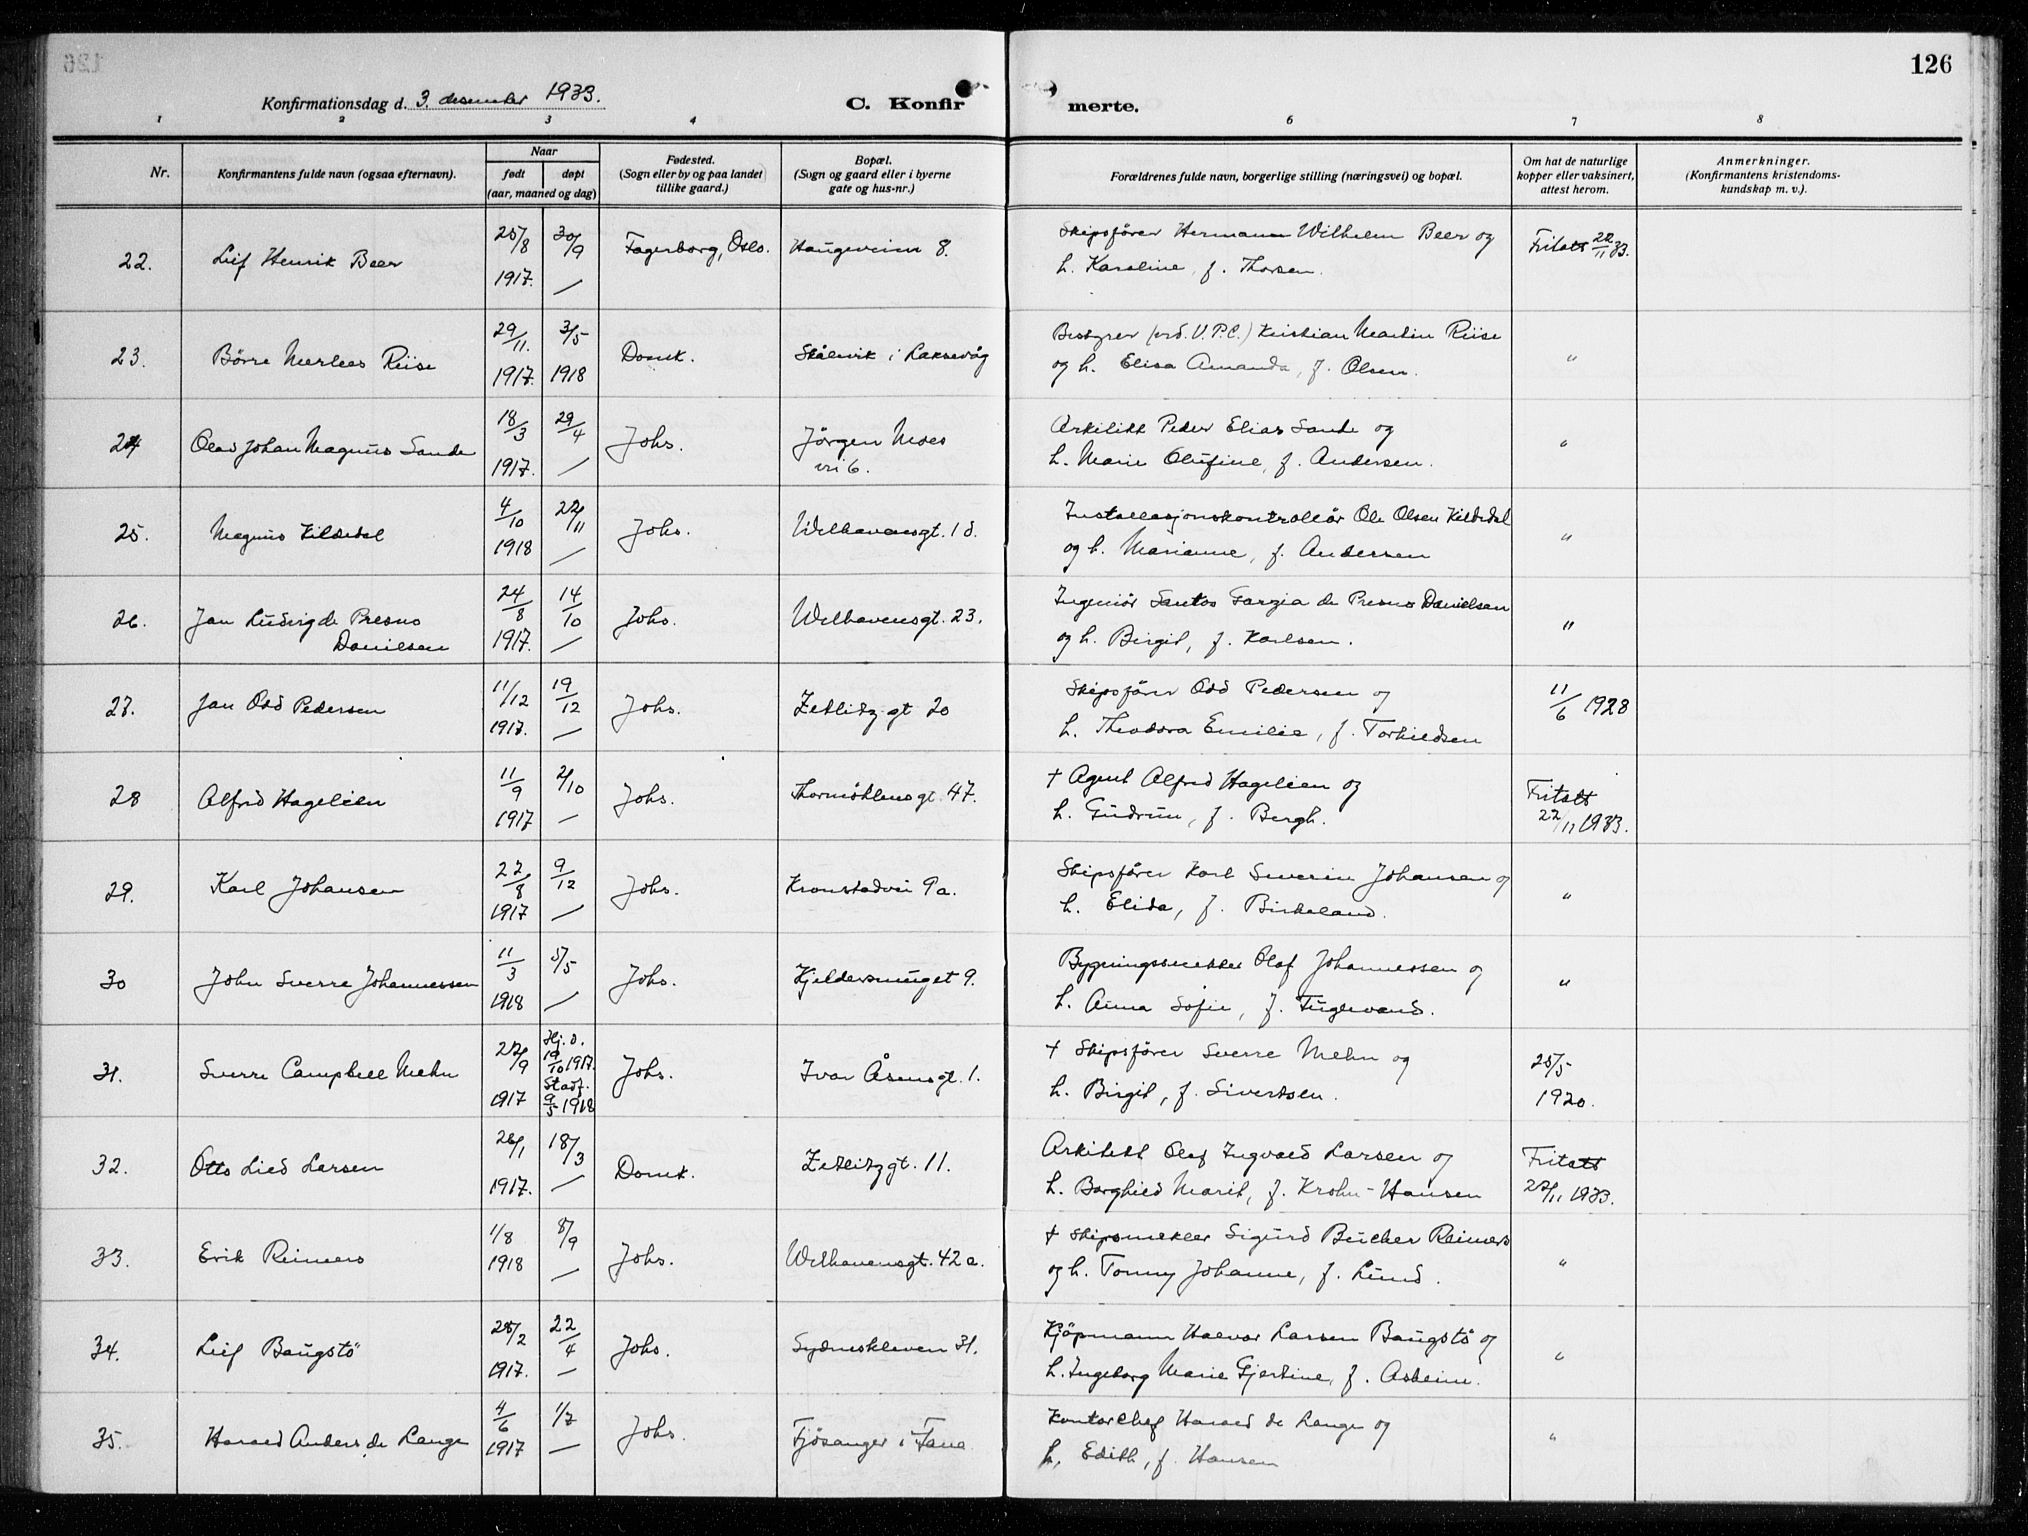 126
Konfirmationsdag d. 3. desember 1933.
C. Konfirmerte.
1 2 3 4 6 7 8
Nr.
Konfirmantens fulde navn (ogsaa efternavn).
Naar
født døpt
(aar, maaned og dag)
Fødested.
(Sogn eller by og paa landet
tillike gaard.)
Bopæl.
(Sogn og gaard eller i byerne
gate og hus-nr.)
Forældrenes fulde navn, borgerlige stilling (næringsvei) og bopæl.
Om hat de naturlige
kopper eller vaksinert,
attest herom.
Anmerkninger.
(Konfirmantens kristendoms-
kundskap m. v.).
22. Leif Henrik Beer 25/8 1917. 30/9 / Fagerborg, Oslo. Haugeveien 8.
Skipsfører Hermann Wilhelm Beer og
h. Karoline, f. Thorsen.
Fritatt 22/11 33.
23. Børre Merlees Riise 29/11. 1917. 3/5 1918 Domk. Skålevik i Laksevåg
Bestyrer (ved V.P.C.) Kristian Martin Riise
og h. Elisa Amanda, f. Olsen.
"
24 Olav Johan Magnus Sande 18/3 1917. 29/4 / Johs. Jörgen Moes
vei 6.
Arkitekt Peder Elias Sande og
h. Marie Olufine, f. Andersen.
"
25. Magnus Kildedal 4/10 1918 22/11 / Johs. Welhavensgt. 18.
Installasjonskontrollör Ole Olsen Kildedal
og h. Marianne, f. Andersen
"
26. Jan Ludvig de Presno
Danielsen 24/8 1917. 14/10 / Johs. Welhavensgt. 23.
Ingeniör Santos Garzia de Presno Danielsen
og h. Birgit, f. Karlsen.
"
27. Jan Odd Pedersen 11/12 1917. 19/12 / Johs. Zetlitzgt 20
Skipsfører Odd Pedersen og
h. Theodora Emilie, f. Torkildsen
11/6 1928
28 Alfred Hageléen 11/9 1917 2/10 / Johs. Thormöhlensgt. 47.
† Agent Alfred Hageléen og
h. Gudrun, f. Bergh.
Fritatt
22/11 1933.
29. Karl Johansen 22/8 1917 9/12 / Johs. Kronstadvei 9a.
Skipsfører Karl Severin Johansen og
h. Elida, f. Birkeland.
"
30 John Sverre Johannessen 11/3 1918 5/5 / Johs. Kjeldersmuget 9.
Bygningssnekker Olaf Johannessen og
h. Anna Sofie, f. Fuglevand.
"
31. Sverre Campbell Mehn 27/9 1917 Hj. d. 19/10 1917. Stadf. 9/5 1918 Johs. Ivar Åsensgt. 1.
† Skipsfører Sverre Mehn og
h. Birgit, f. Sivertsen.
25/5
1920.
32. Otto Lied Larsen 26/1 1917. 18/3 / Domk. Zetlitzgt. 11.
Arkitekt Olaf Ingvald Larsen og
h. Borghild Marit, f. Krohn-Hansen
Fritatt
22/11 1933.
33. Erik Reimers 1/8 1918 8/9 / Johs. Welhavensgt. 42a.
† Skipsmekler Sigurd Bucher Reimers
og h. Tonny Johanne, f. Lund.
"
34. Leif Baugstö 28/2 1917. 22/4 / Johs. Sydneskleven 31.
Kjöpmann Halvor Larsen Baugstö og
h. Ingeborg Marie Gjertine, f. Asheim.
"
35. Harald Anders de Lange 4/6 1917 1/7 / Johs. Fjösanger i Fana
Kontorchef Harald de Lange og
h. Edith, f. Hansen
"